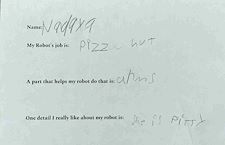 Name: Nadaya
My Robot's job is: pizza hut
A part that helps my robot do that is: arms
One detail I really like about my robot is: she is pirsy